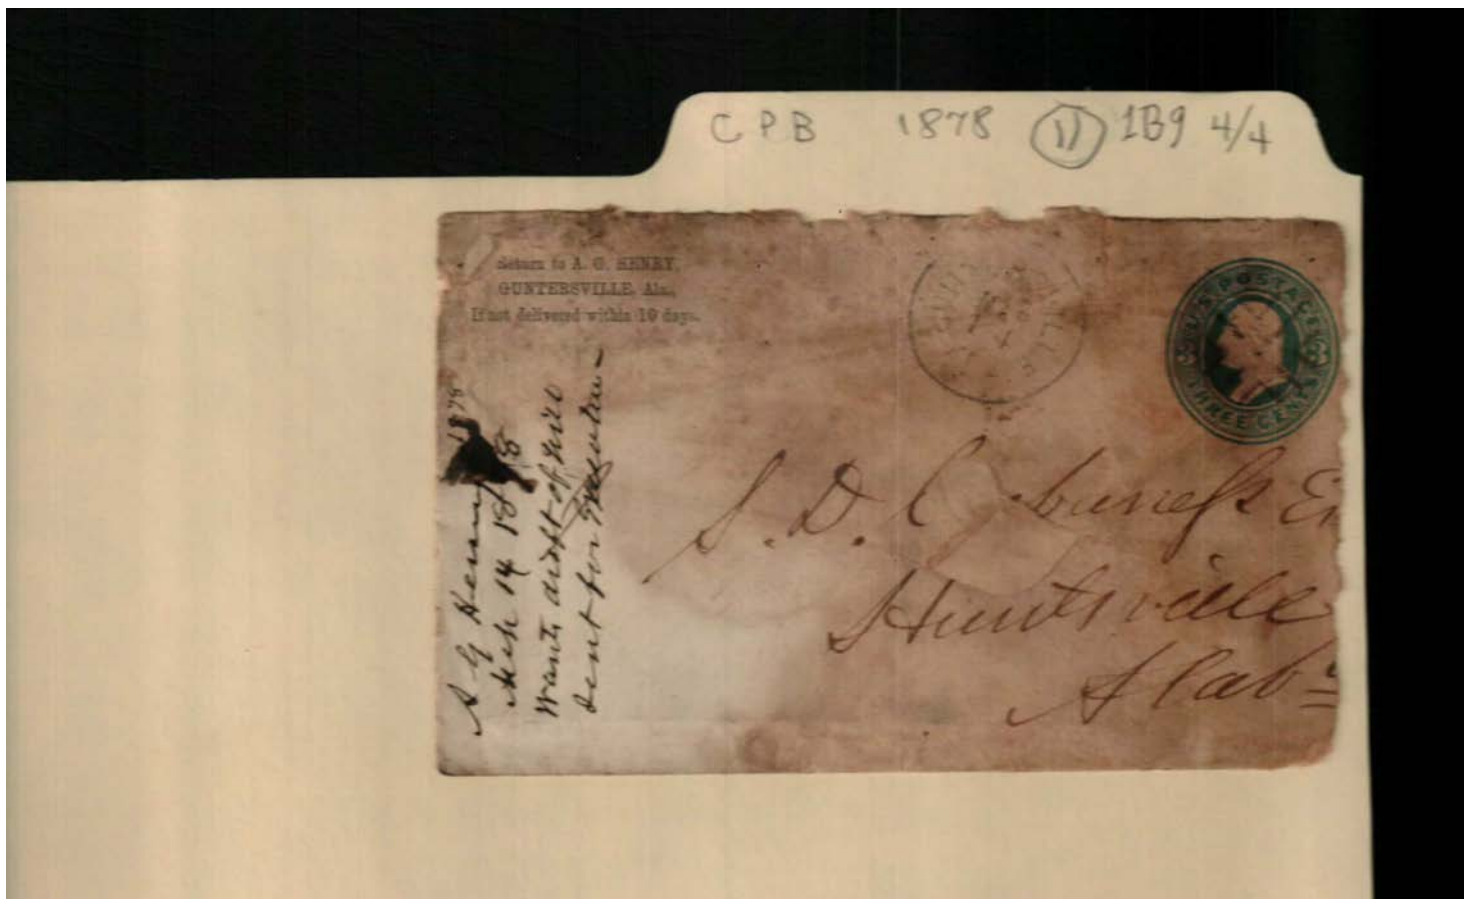 CPB 1878 (11) 1B9 4/4
Return to A. G. HENRY,
GUNTERSVILLE, Ala.,
If not delivered within 10 days.
U.S. POSTAGE
THREE CENTS
S. D. Cabuness
Huntsville
Alab
A G Henry
14 1878
1878
Wants draft of
sent for